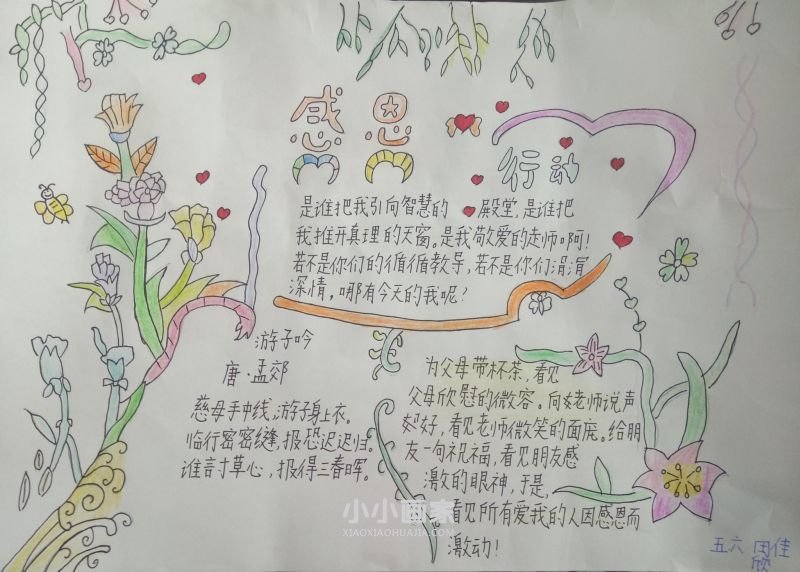 感恩
行动
是谁把我引向智慧的 殿堂,是谁把
我推开真理的天窗。是我敬爱的老师啊!
若不是你们的循循教导,若不是你们涓涓
深情,哪有今天的我呢?
游子吟
唐·孟郊
慈母手中线,游子身上衣。
临行密密缝,报恐迟迟归。
谁言寸草心,报得三春晖。
为父母带杯茶,看见
父母欣慰的微容。向老师说声
好,看见老师微笑的面庞。给朋
友一句祝福,看见朋友感
激的眼神,于是,
看见所有爱我的人因感恩而
激动!
五六 闵佳
欣
小小画家
XIAOXIAOHUAJIA.COM